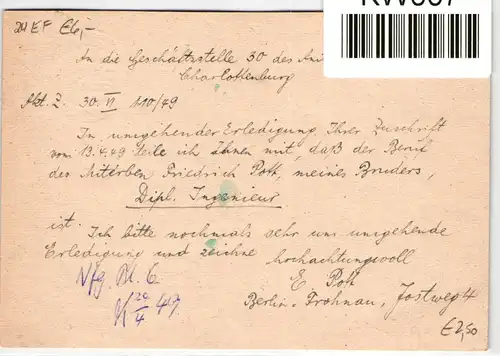 24 EF €6,-
An die Geschäftsstelle 30 des
Charlottenburg
Akt. Z. 30. VI 110/49
In umgehender Erledigung Ihrer Zuschrift
vom 13.4.49 teile ich Ihnen mit, daß der Beruf
des Miterben Friedrich Pott, meines Bruders,
Dipl. Ingenieur
ist. Ich bitte nochmals sehr um umgehende
Erledigung und zeichne hochachtungsvoll
E. Pott
Berlin-Frohnau, Jostweg 4
Vfg. Bl. 6.
€2,50